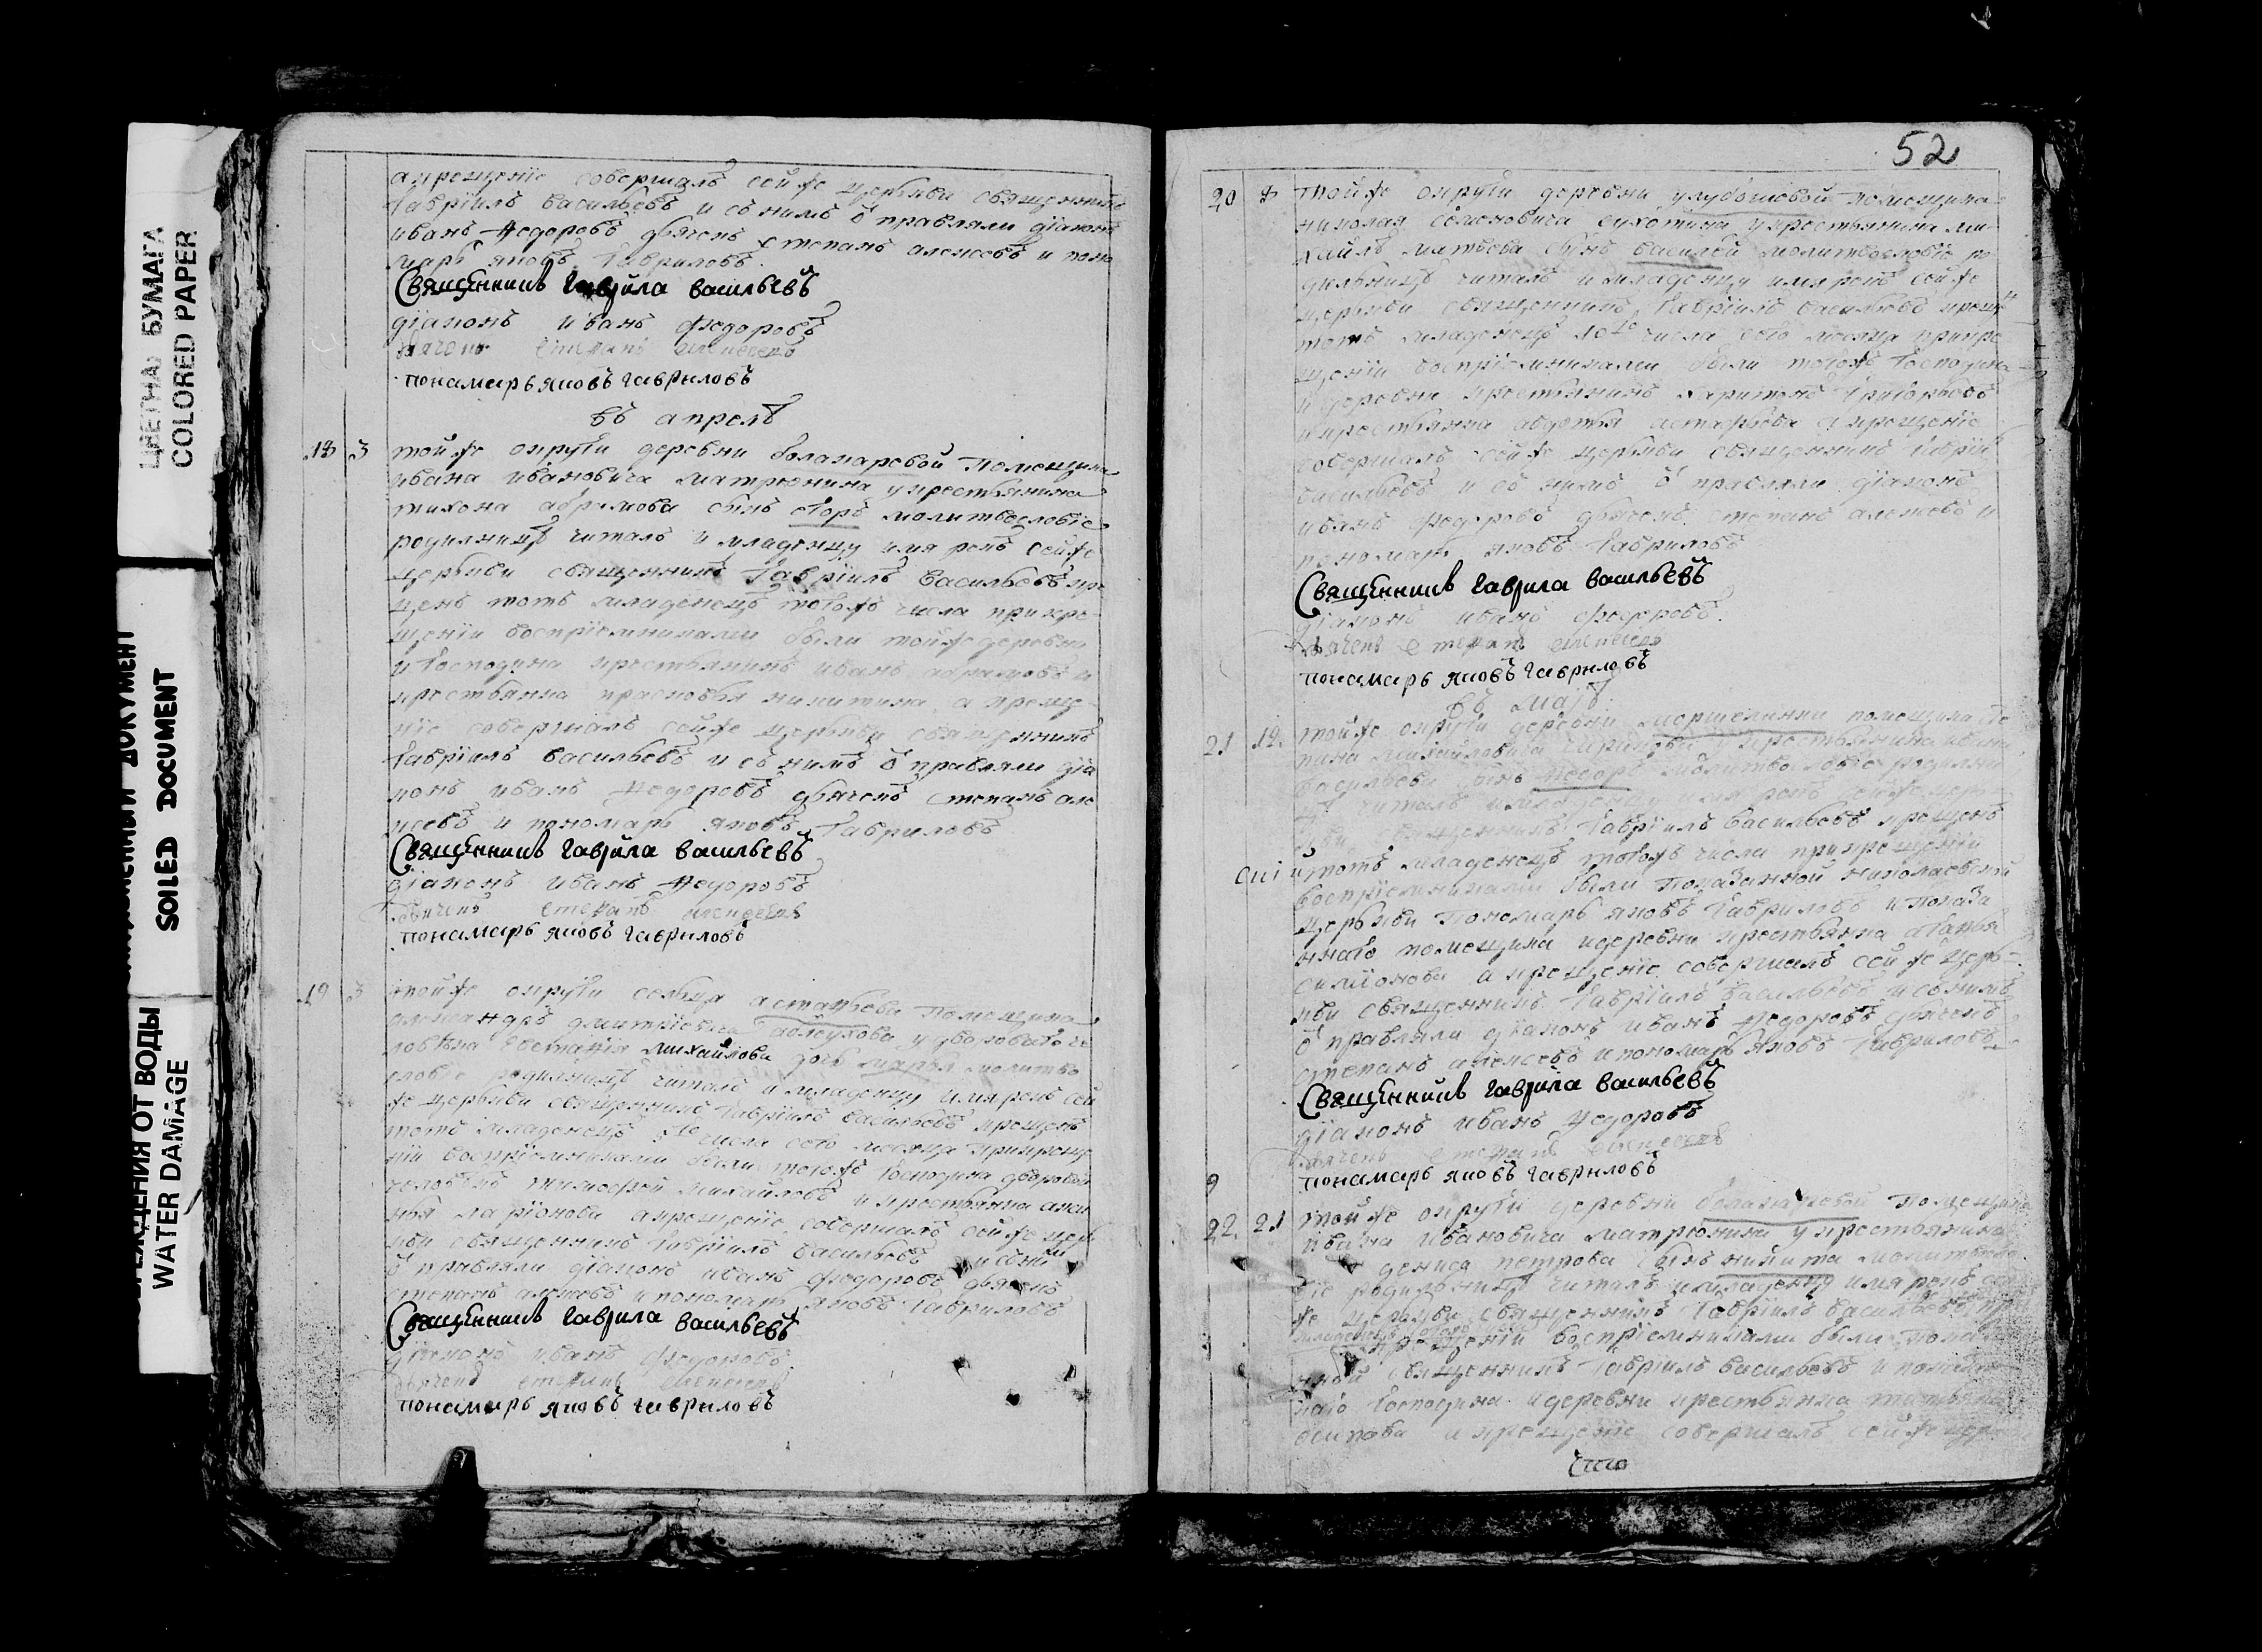 ЦВЕТНАЯ БУМАГА
COLORED PAPER
ДОКУМЕНТ
SOILED DOCUMENT
ПОВРЕЖДЕНИЯ ОТ ВОДЫ
WATER DAMAGE
а крещенїе совершалъ сей же церькви священникъ
Гаврїилъ Васильевъ и съ нимъ ѿправляли дїаконъ
иванъ Ѳедоровъ дьячекъ степанъ алексѣевъ и поно
марь яковъ Гавриловъ
Священникъ гаврила васильевъ
дїаконъ иванъ федоровъ
дьячекъ степанъ алексеевъ
понамарь яковъ гавриловъ
въ апрелѣ
18 3 той же округи деревни болахаровой помещика
ивана ивановича матрюнина у крестьянина
тихона абрамова сынъ егоръ молитвословїе
родилницѣ читалъ и младенцу имя рекъ сей же
церькви священникъ Гаврїилъ Васильевъ кре
щенъ тотъ младенецъ тогожъ числа при кре
щенїи воспрїемниками были той же деревни
и Господина крестьянинъ иванъ абрамовъ и
крестьянка прасковья никитина а креще
нїе совершалъ сей же церькви священникъ
Гаврїилъ Васильевъ и съ нимъ ѿправляли дїа
конъ иванъ Ѳедоровъ дьячекъ степанъ але
ксеевъ и пономарь яковъ Гавриловъ
Священникъ гаврила васильевъ
дїаконъ иванъ Ѳедоровъ
дьячекъ степанъ алексеевъ
понамарь яковъ гавриловъ
19 3 той же округи сельца астафьева помещика
александръ дмитрїевича у дворового че
ловѣка евстафїя михайлова дочь марья молитво
слов е родилницѣ читалъ и младенцу имя рекъ сей
же церькви священникъ Гаврїилъ Васильевъ крещенъ
тотъ младенецъ 5го числа сего месяца при креще
нїи воспрїемниками были тогожъ Господина дворовой
человѣкъ тимофей михайловъ и крестьянка
ларїонова а крещенїе совершалъ сей же церь
кви священникъ Гаврїилъ Васильевъ и съ ним
ѿправляли дїаконъ иванъ федоровъ дьячекъ
степанъ алексѣевъ и пономарь яковъ Гавриловъ
Священникъ гаврила васильевъ
дїаконъ иванъ федоровъ
дьячекъ степанъ алексеевъ
понамарь яковъ гавриловъ
52
20 той же округи деревни помещика
николая семеновича сухотина у крестьянина ми
хайлы матвеева сынъ василей молитвословїе ро
дильницѣ читалъ и младенцу имя рекъ сей же
церькви священникъ Гаврїилъ Васильевъ крещенъ
тотъ младенецъ 10го числа сего месяца при кре
щенїи воспрїемниками были тогожъ Господина
и деревни крестьянинъ харитонъ Григорьевъ
и крестьянка авдотья астафьева а крещенїе
совершалъ сей же церькви священникъ Гаврїи
Васильевъ и съ нимъ ѿправляли дїаконъ
иванъ федоровъ дьячекъ степанъ алексѣевъ и
пономарь яковъ Гавриловъ
Священникъ гаврила васильевъ
дїаконъ иванъ федоровъ
дьячекъ степанъ алексеевъ
понамарь яковъ гавриловъ
въ маїѣ
21 12 той же округи деревни помещика сте
пана михайловича у крестьянина ивана
васильева сынъ Ѳедоръ молитвословїе родилни
цѣ читалъ и младенцу имя рекъ сей же церь
кви священникъ Гаврїилъ Васильевъ крещенъ
тотъ младенецъ тогожъ числа при крещенїи
воспрїемниками были показанной николаевской
церькви пономарь яковъ Гавриловъ и показа
ннаго помещика и деревни крестьянка агафья
симїонова а крещенїе совершалъ сей же церь
кви священникъ Гаврїилъ Васильевъ и съ нимъ
ѿправляли дїаконъ иванъ Ѳедоровъ дьячекъ
степанъ алексеевъ и пономарь яковъ Гавриловъ
Священникъ гаврила васильевъ
дїаконъ иванъ Ѳедоровъ
дьячекъ степанъ алексеевъ
понамарь яковъ гавриловъ
22 21 той же округи деревни болахаровой помещика
ивана ивановича матрюнина у крестьянина
дениса петрова сынъ никита молитвосло
вїе родильницѣ читалъ и младенцу имя рекъ се
же церькви священникъ Гаврїилъ Васильевъ
крещенїи воспрїемниками были показа
нной священникъ Гаврїилъ Васильевъ и показан
наго Господина и деревни крестьянка татьяна
осипова а крещенїе совершалъ сей же церь